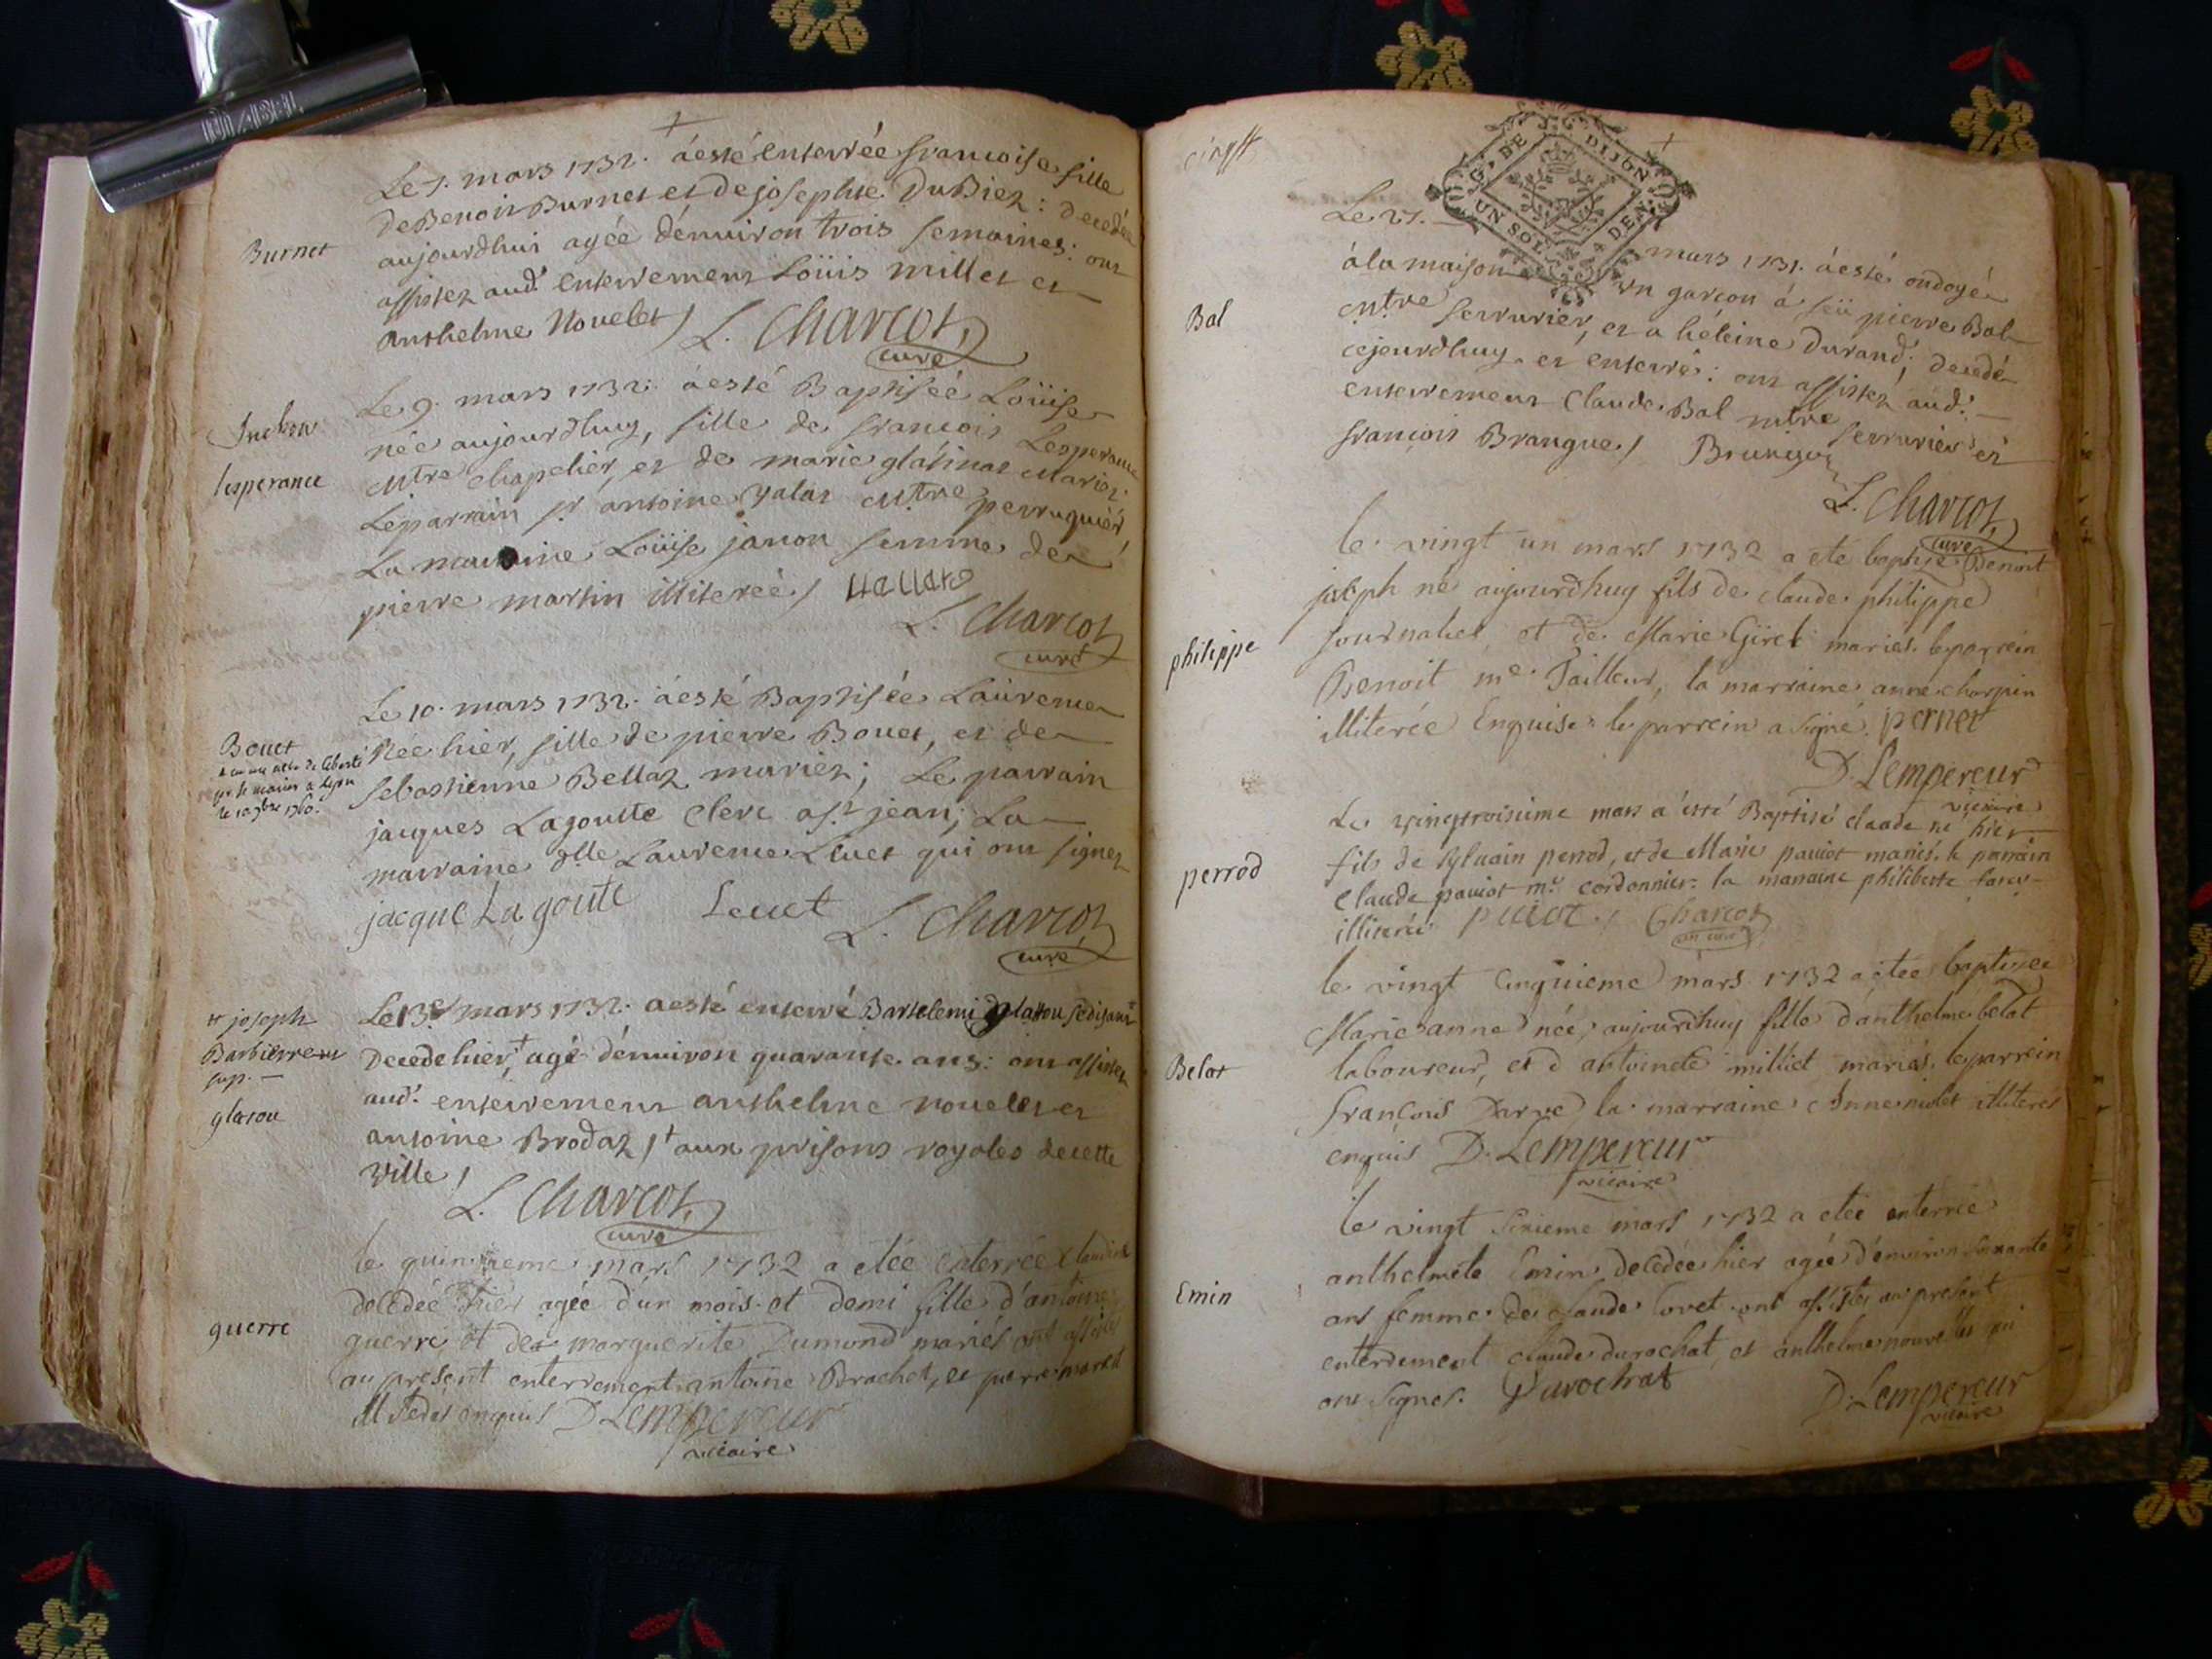 DIABEL
Le 7. mars 1732. a esté enterrée francoise fille
De Benoit Burnet et de josephte DuBiez: decedée
Burnet
aujourdhui agée dénuiron trois semaines: ont
assistez aud.t enterrement Loüis millet et
Anthelme Nouelet / L. Charcot,
curé
Le 9. mars 1732. a esté Baptiséé Loüise
née aujourdhuy, fille de francois Lesperance
lesperance
Mtre chapelier, et de marie glatinat Mariez
Le parrain sr antoine Mtre perruquiér,
La marraine Loüise janon femme de
pierre martin illiterée /
L. Charcot
curé
Le 10. mars 1732. a esté Baptisée Laurence
Bouet
Née hier, fille de pierre Bouet, et de
Sebastienne Bellaz mariez; Le parrain
le 10 9bre 1760.
jacques Lagoutte Clerc a st jean; La
marraine dlle Laurence Luet qui ont signez
jacque La goute Leuet L. Charcot
curé
Le 13e mars 1732. a esté enterré Bartelemi glatou se disant
+ joseph
Barbier
sup.
Decedé hier,+ agé dénuiron quarante ans: ont assistez
glatou
aud.t enterrement anthelme nouelet et
antoine Brodaz /+ aux prisons royales de cette
ville /
L. Charcot,
curé
le quinzieme mars 1732 a eteé enterrée Claudine
decedeé hier agée d'un mois et demi fille d'antoine
guerre
guerre et de marguerite Dumond mariés ont assistés
au present enterrement antoine Brachet, et pierre
enquis D. Lempereur
vicaire
G. DE DIJON
UN SOL 4 DEN.
Le 21. mars 1732. a esté ondoyé
a la maison un garcon á feü pierre Bal
Bal
Mtre serrurier, et a héleine Durand; decedé
cejourdhuy et enterré: ont assistez aud.t
enterrement Claude Bal mtre serrurier et
françois Brangue /
L. Charcot,
curé
le vingt un mars 1732 a eté baptisé Benoit
joseph né aujourdhuy fils de claude philippe
philippe
journalier, et de Marie Giret mariés. le parrein
Benoit me Tailleur, la marraine anne charpin
illiterée Enquise le parrein a signé. pernet
D. Lempereur
vicaire
Le vingtroisieme mars a été Baptisé claude né hier
perrod
fils de sylvain perrod, et de Marie pauiot mariés. le parrain
Claude pauiot me cordonnier: la marraine philiberte
illiterée Charcot
le vingt Cinquieme mars 1732 a étée baptisée
Marie anne née aujourdhuy fille d'anthelme belat
Belat
laboureur, et d antoinete milliet mariés. le parrein
françois Darve la marraine Anne molet illiterés
enquis D. Lempereur
vicaire
le vingt Sixieme mars 1732 a eteé enterreé
anthelmete Emin decedée hier agée d'enuiron soixante
Emin
ans femme de claude lovet ont assistés au present
enterrement claude durochat, et anthelme nouelles qui
ont signés. Durochat D. Lempereur
vicaire